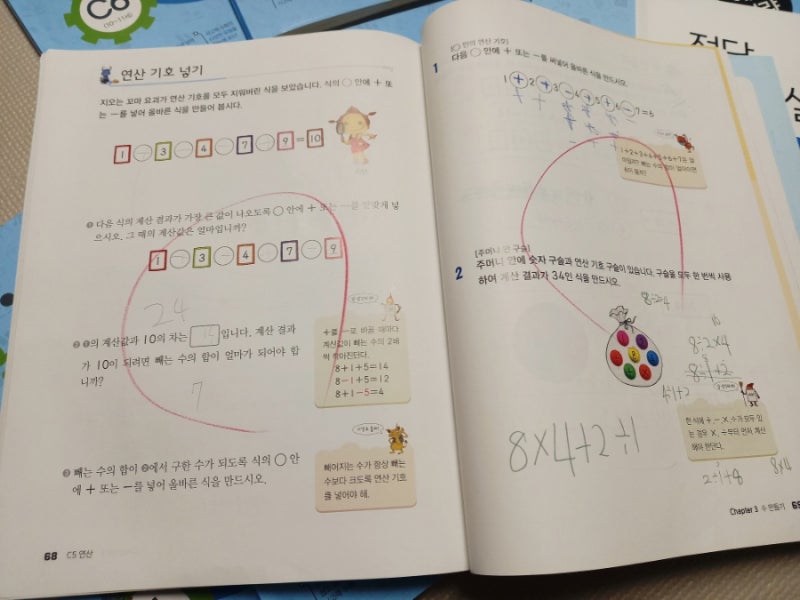 C6
(10~11세)
연산 기호 넣기
지오는 꼬마 요괴가 연산 기호를 모두 지워버린 식을 보았습니다. 식의 ○ 안에 + 또
는 −를 넣어 올바른 식을 만들어 봅시다.
1 ○ 3 ○ 4 ○ 7 ○ 9 = 10
❶ 다음 식의 계산 결과가 가장 큰 값이 나오도록 ○ 안에 + 또는 −를 알맞게 넣
으시오. 그 때의 계산값은 얼마입니까?
1 ○ 3 ○ 4 ○ 7 ○ 9
24
❷ ❶의 계산값과 10의 차는 14 입니다. 계산 결과
가 10이 되려면 빼는 수의 합이 얼마가 되어야 합
니까?
7
+를 −로 바꿀 때마다
계산값이 빼는 수의 2배
씩 작아진단다.
8+1+5=14
8−1+5=12
8+1−5=4
❸ 빼는 수의 합이 ❷에서 구한 수가 되도록 식의 ○ 안
에 + 또는 −를 넣어 올바른 식을 만드시오.
빼어지는 수가 항상 빼는
수보다 크도록 연산 기호
를 넣어야 해.
68 C5 연산
[○ 안의 연산 기호]
1 다음 ○ 안에 + 또는 −를 써넣어 올바른 식을 만드시오.
1 + 2 + 3 − 4 + 5 + 6 − 7 = 6
1+2+3+4+5+6+7은 얼
마일까? 빼는 수의 합이 얼마이면
[주머니 안 구슬]
2 주머니 안에 숫자 구슬과 연산 기호 구슬이 있습니다. 구슬을 모두 한 번씩 사용
하여 계산 결과가 34인 식을 만드시오.
8÷2×4
8×4+2÷1
한 식에 +, −, ×, ÷가 모두 있
는 경우 ×, ÷부터 먼저 계산
해야 한단다.
2÷1+8
8×4
Chapter 3 수 만들기 69
정답